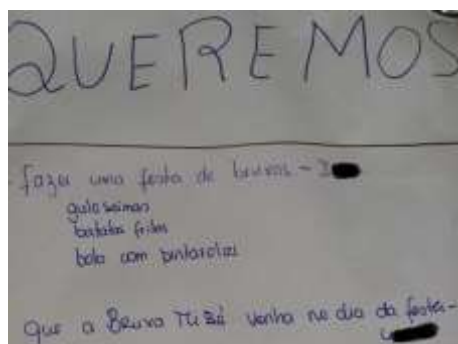 QUEREMOS
- Fazer uma festa de bruxas - I
guloseimas
batatas fritas
bolo com pintarolas
Que a Bruxa venha no dia da festa -